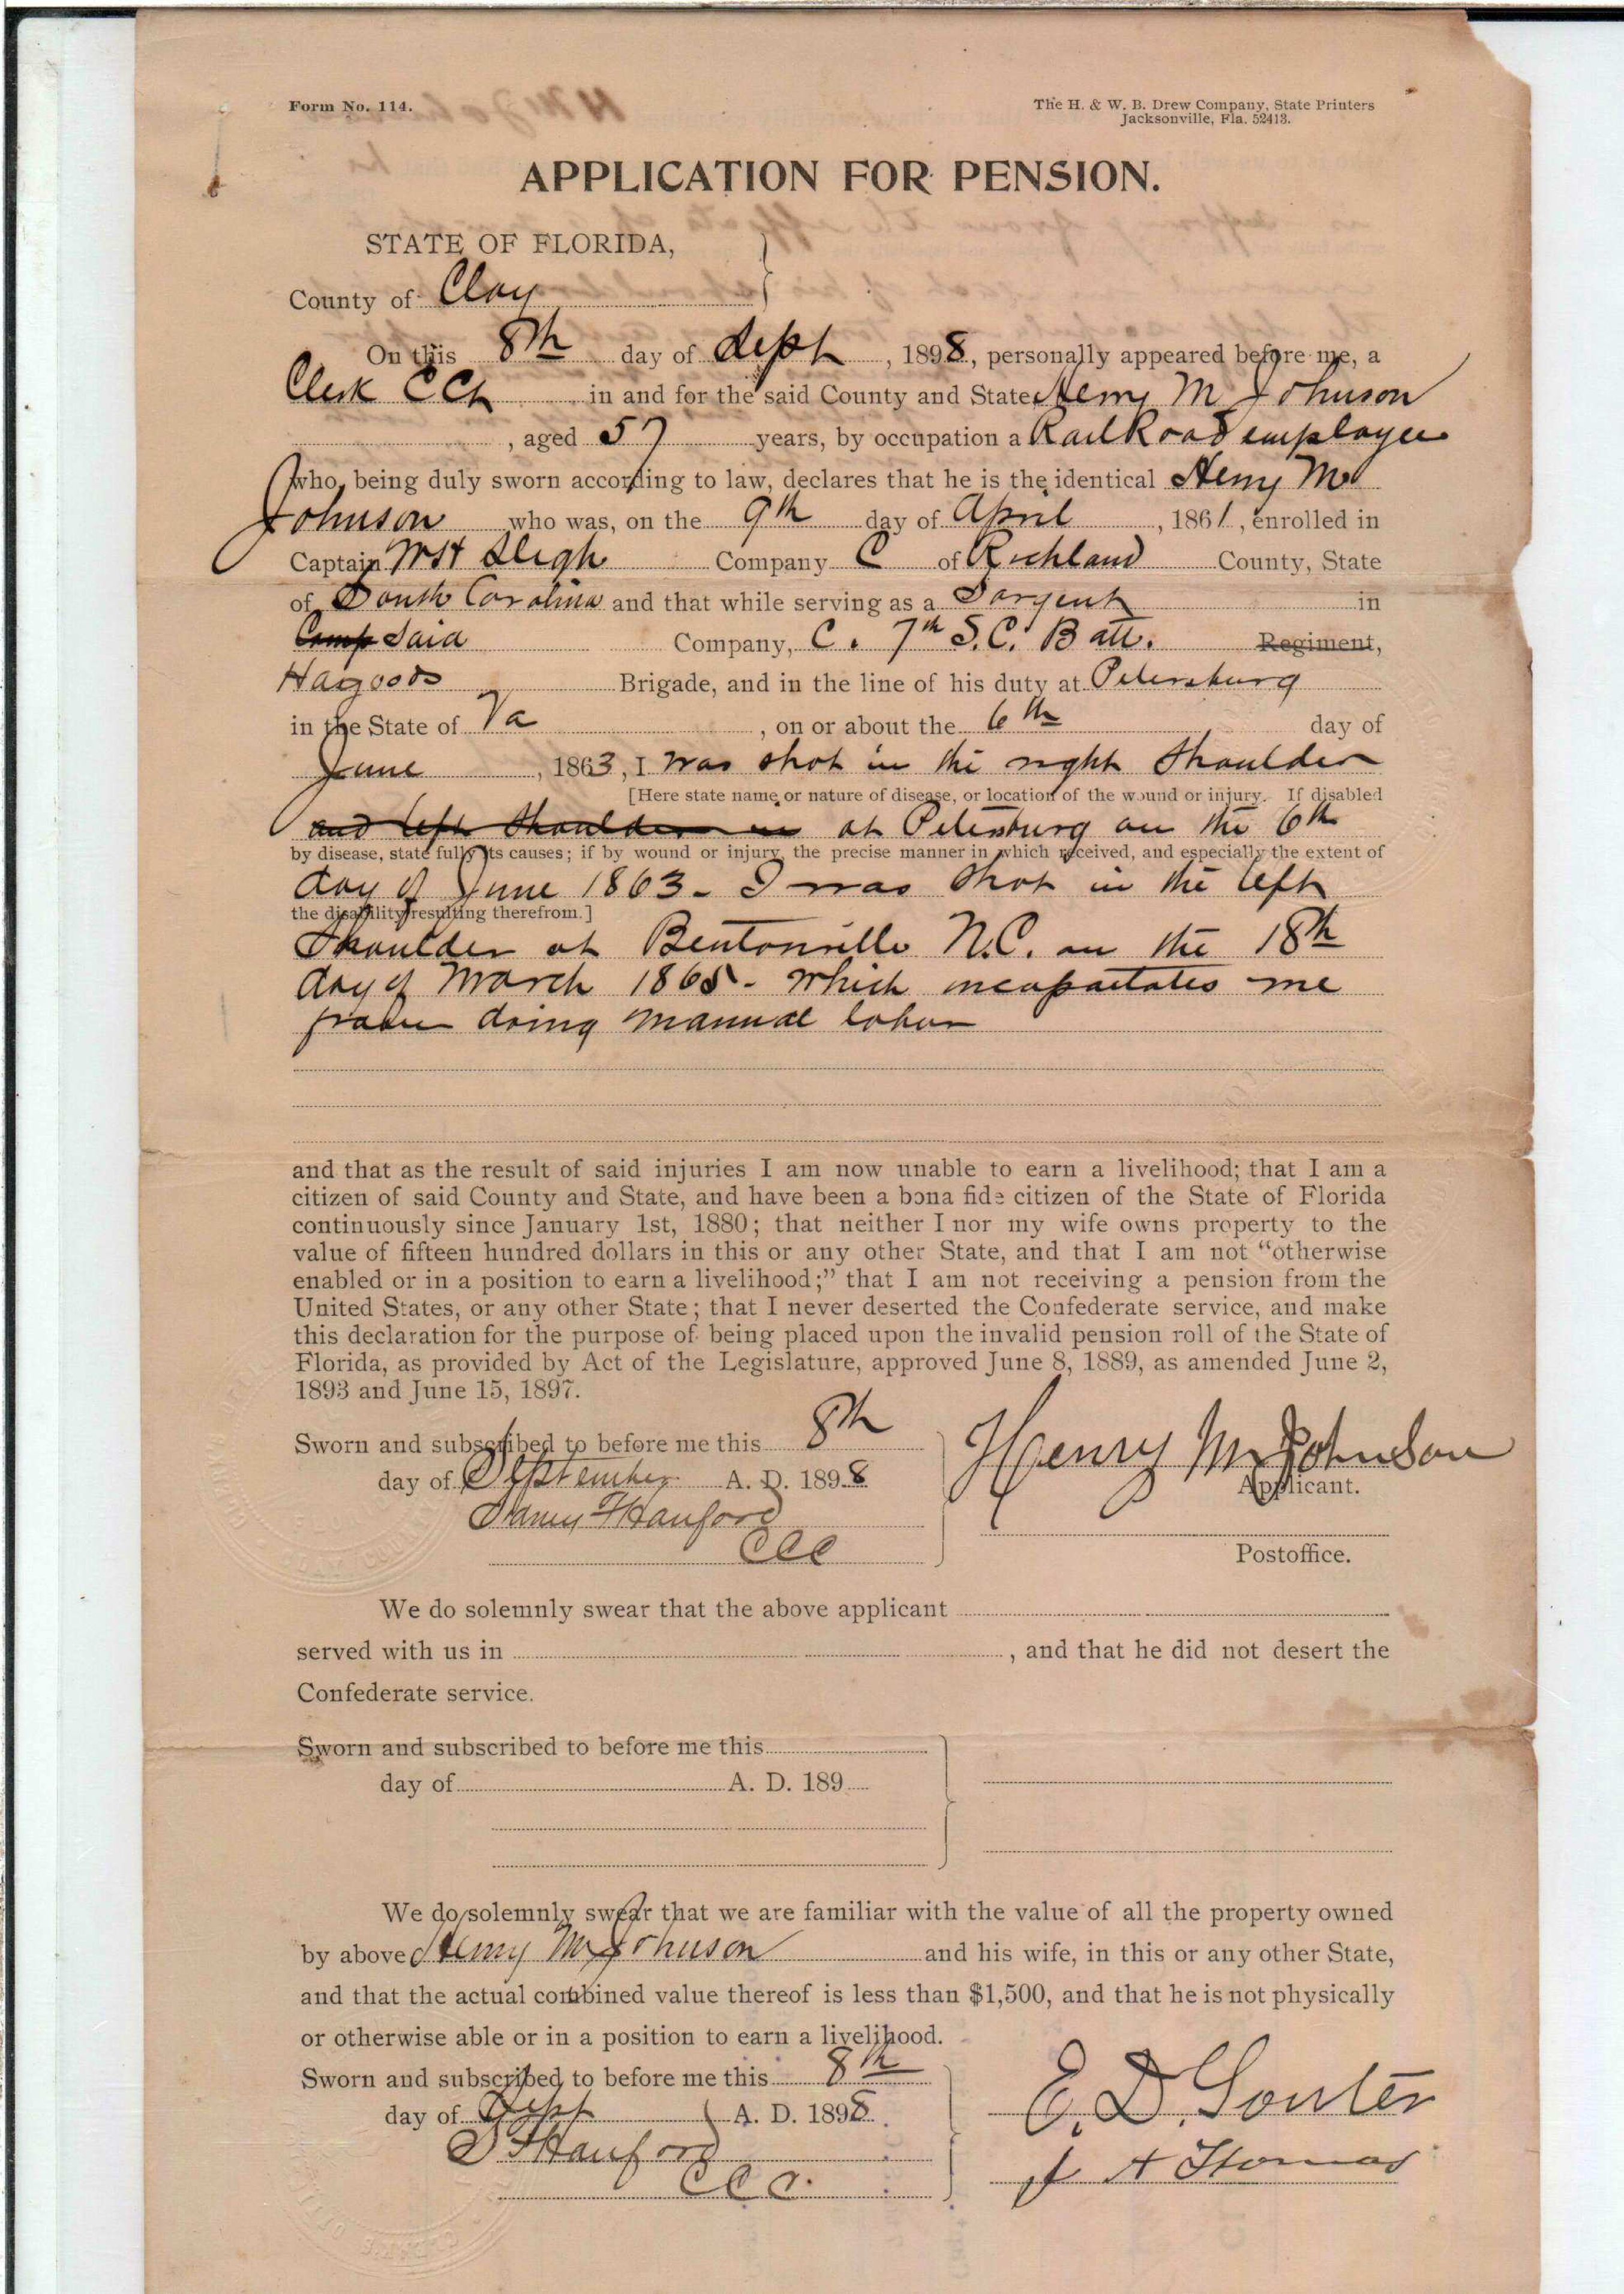 Form No. 114.
The H. & W. B. Drew Company, State Printers
Jacksonville, Fla. 52413.
APPLICATION FOR PENSION.
STATE OF FLORIDA,
County of Clay
On this 8th day of Sept, 1898, personally appeared before me, a
Clerk C Ct in and for the said County and State Henry M Johnson
, aged 57 years, by occupation a RailRoad employee
who, being duly sworn according to law, declares that he is the identical Henry M
Johnson who was, on the 9th day of April, 1861, enrolled in
Captain Sligh Company C of Richland County, State
of South Carolina and that while serving as a Sargent in
Camp Said Company, C. 7th S.C. Batt. Regiment,
Hagoods Brigade, and in the line of his duty at Petersburg
in the State of Va, on or about the 6th day of
June, 1863, I was shot in the right Shoulder
[Here state name or nature of disease, or location of the wound or injury. If disabled
and left Shoulder in at Petersburg on the 6th
by disease, state fully its causes; if by wound or injury, the precise manner in which received, and especially the extent of
day of June 1863 - I was Shot in the left
the disability resulting therefrom.]
Shoulder at Bentonville N.C. on the 18th
day of March 1865 - which incapacitates me
from doing manual labor
and that as the result of said injuries I am now unable to earn a livelihood; that I am a
citizen of said County and State, and have been a bona fide citizen of the State of Florida
continuously since January 1st, 1880; that neither I nor my wife owns property to the
value of fifteen hundred dollars in this or any other State, and that I am not "otherwise
enabled or in a position to earn a livelihood;" that I am not receiving a pension from the
United States, or any other State; that I never deserted the Confederate service, and make
this declaration for the purpose of being placed upon the invalid pension roll of the State of
Florida, as provided by Act of the Legislature, approved June 8, 1889, as amended June 2,
1893 and June 15, 1897.
Sworn and subscribed to before me this 8th
day of September A. D. 1898
Henry M Johnson
Applicant.
F Hanford
CCC
Postoffice.
We do solemnly swear that the above applicant
served with us in , and that he did not desert the
Confederate service.
Sworn and subscribed to before me this
day of A. D. 189
We do solemnly swear that we are familiar with the value of all the property owned
by above Henry M Johnson and his wife, in this or any other State,
and that the actual combined value thereof is less than $1,500, and that he is not physically
or otherwise able or in a position to earn a livelihood.
Sworn and subscribed to before me this 8th
day of Sept A. D. 1898
S F Hanford
CCC.
E. D.
J A Thomas